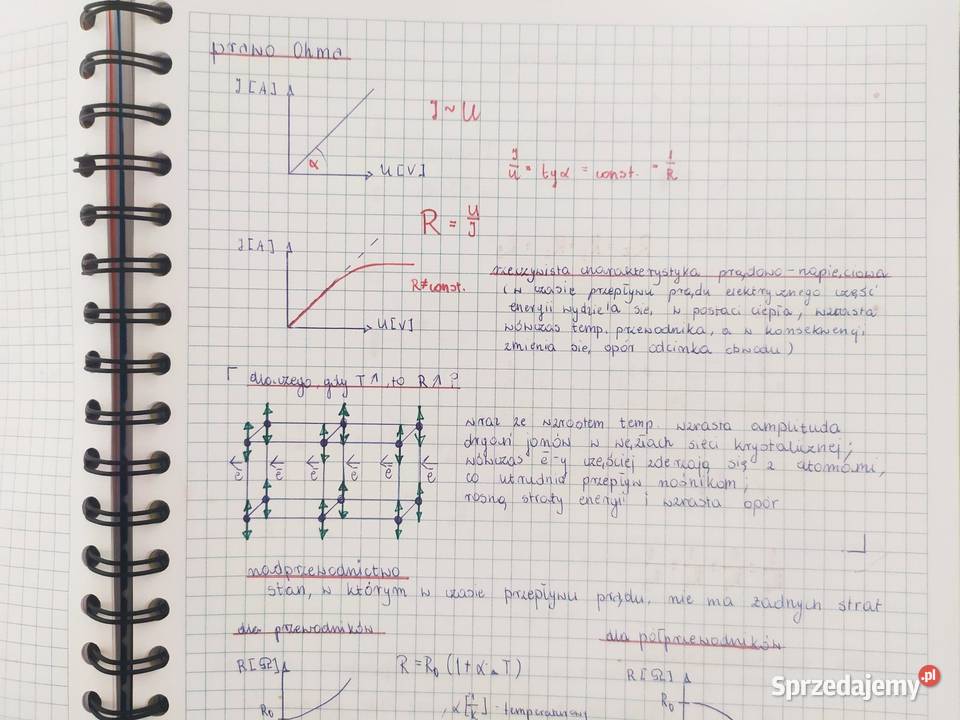 prawo Ohma
I [A]
I ~ U
α
U [V]
I/U = tg α = const. = 1/R
R = U/I
I [A]
R ≠ const.
U [V]
rzeczywista charakterystyka prądowo-napięciowa
(w czasie przepływu prądu elektrycznego część
energii wydziela się, w postaci ciepła, wzrasta
wówczas temp. przewodnika, a w konsekwencji
zmienia się, opór odcinka obwodu)
Γ dlaczego, gdy T↑, to R↑?
wraz ze wzrostem temp. wzrasta amplituda
drgań jonów w węzłach sieci krystalicznej;
wówczas e⁻-y częściej zderzają się z atomami,
co utrudnia przepływ nośnikom;
rosną straty energii i wzrasta opór
e⁻ e⁻ e⁻ e⁻ e⁻ e⁻
nadprzewodnictwo
stan, w którym w czasie przepływu prądu, nie ma żadnych strat
dla przewodników
dla półprzewodników
R [Ω]
R = R₀ (1 + α · ΔT)
R [Ω]
R₀
α [1/K] -
R₀
Sprzedajemy.pl